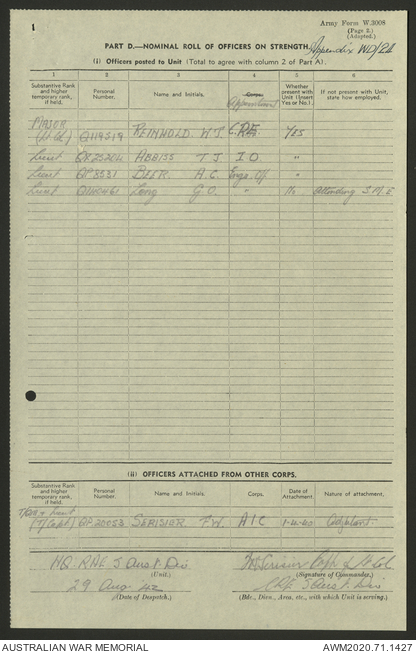 1
Army Form W.3008
(Page 2.)
(Adapted.)
PART D.—NOMINAL ROLL OF OFFICERS ON STRENGTH. Appendix WD/2d
(i) Officers posted to Unit (Total to agree with column 2 of Part A).
1 2 3 4 5 6
Substantive Rank and higher temporary rank, if held. Personal Number. Name and Initials. Corps. Appointment Whether present with Unit (Insert Yes or No). If not present with Unit, state how employed.
MAJOR
QX19519 REINHOLD W J C.RE YES
Lieut QX25204 ABBISS T J I.O. "
Lieut QP8531 BEER A.C. Engr. Off "
Lieut Long G.O. " No Attending S.M.E
(ii) OFFICERS ATTACHED FROM OTHER CORPS.
Substantive Rank and higher temporary rank, if held. Personal Number. Name and Initials. Corps. Date of Attachment Nature of attachment.
Lieut
(T/Capt) QP20053 SERISIER F.W. AIC Adjutant
HQ. RAE 5 Aust Div
(Unit.) (Signature of Commander.)
29 Aug 42 CRE 5 Aust. Div
(Date of Despatch.) (Bde., Divn., Area, etc., with which Unit is serving.)
AUSTRALIAN WAR MEMORIAL AWM2020.71.1427